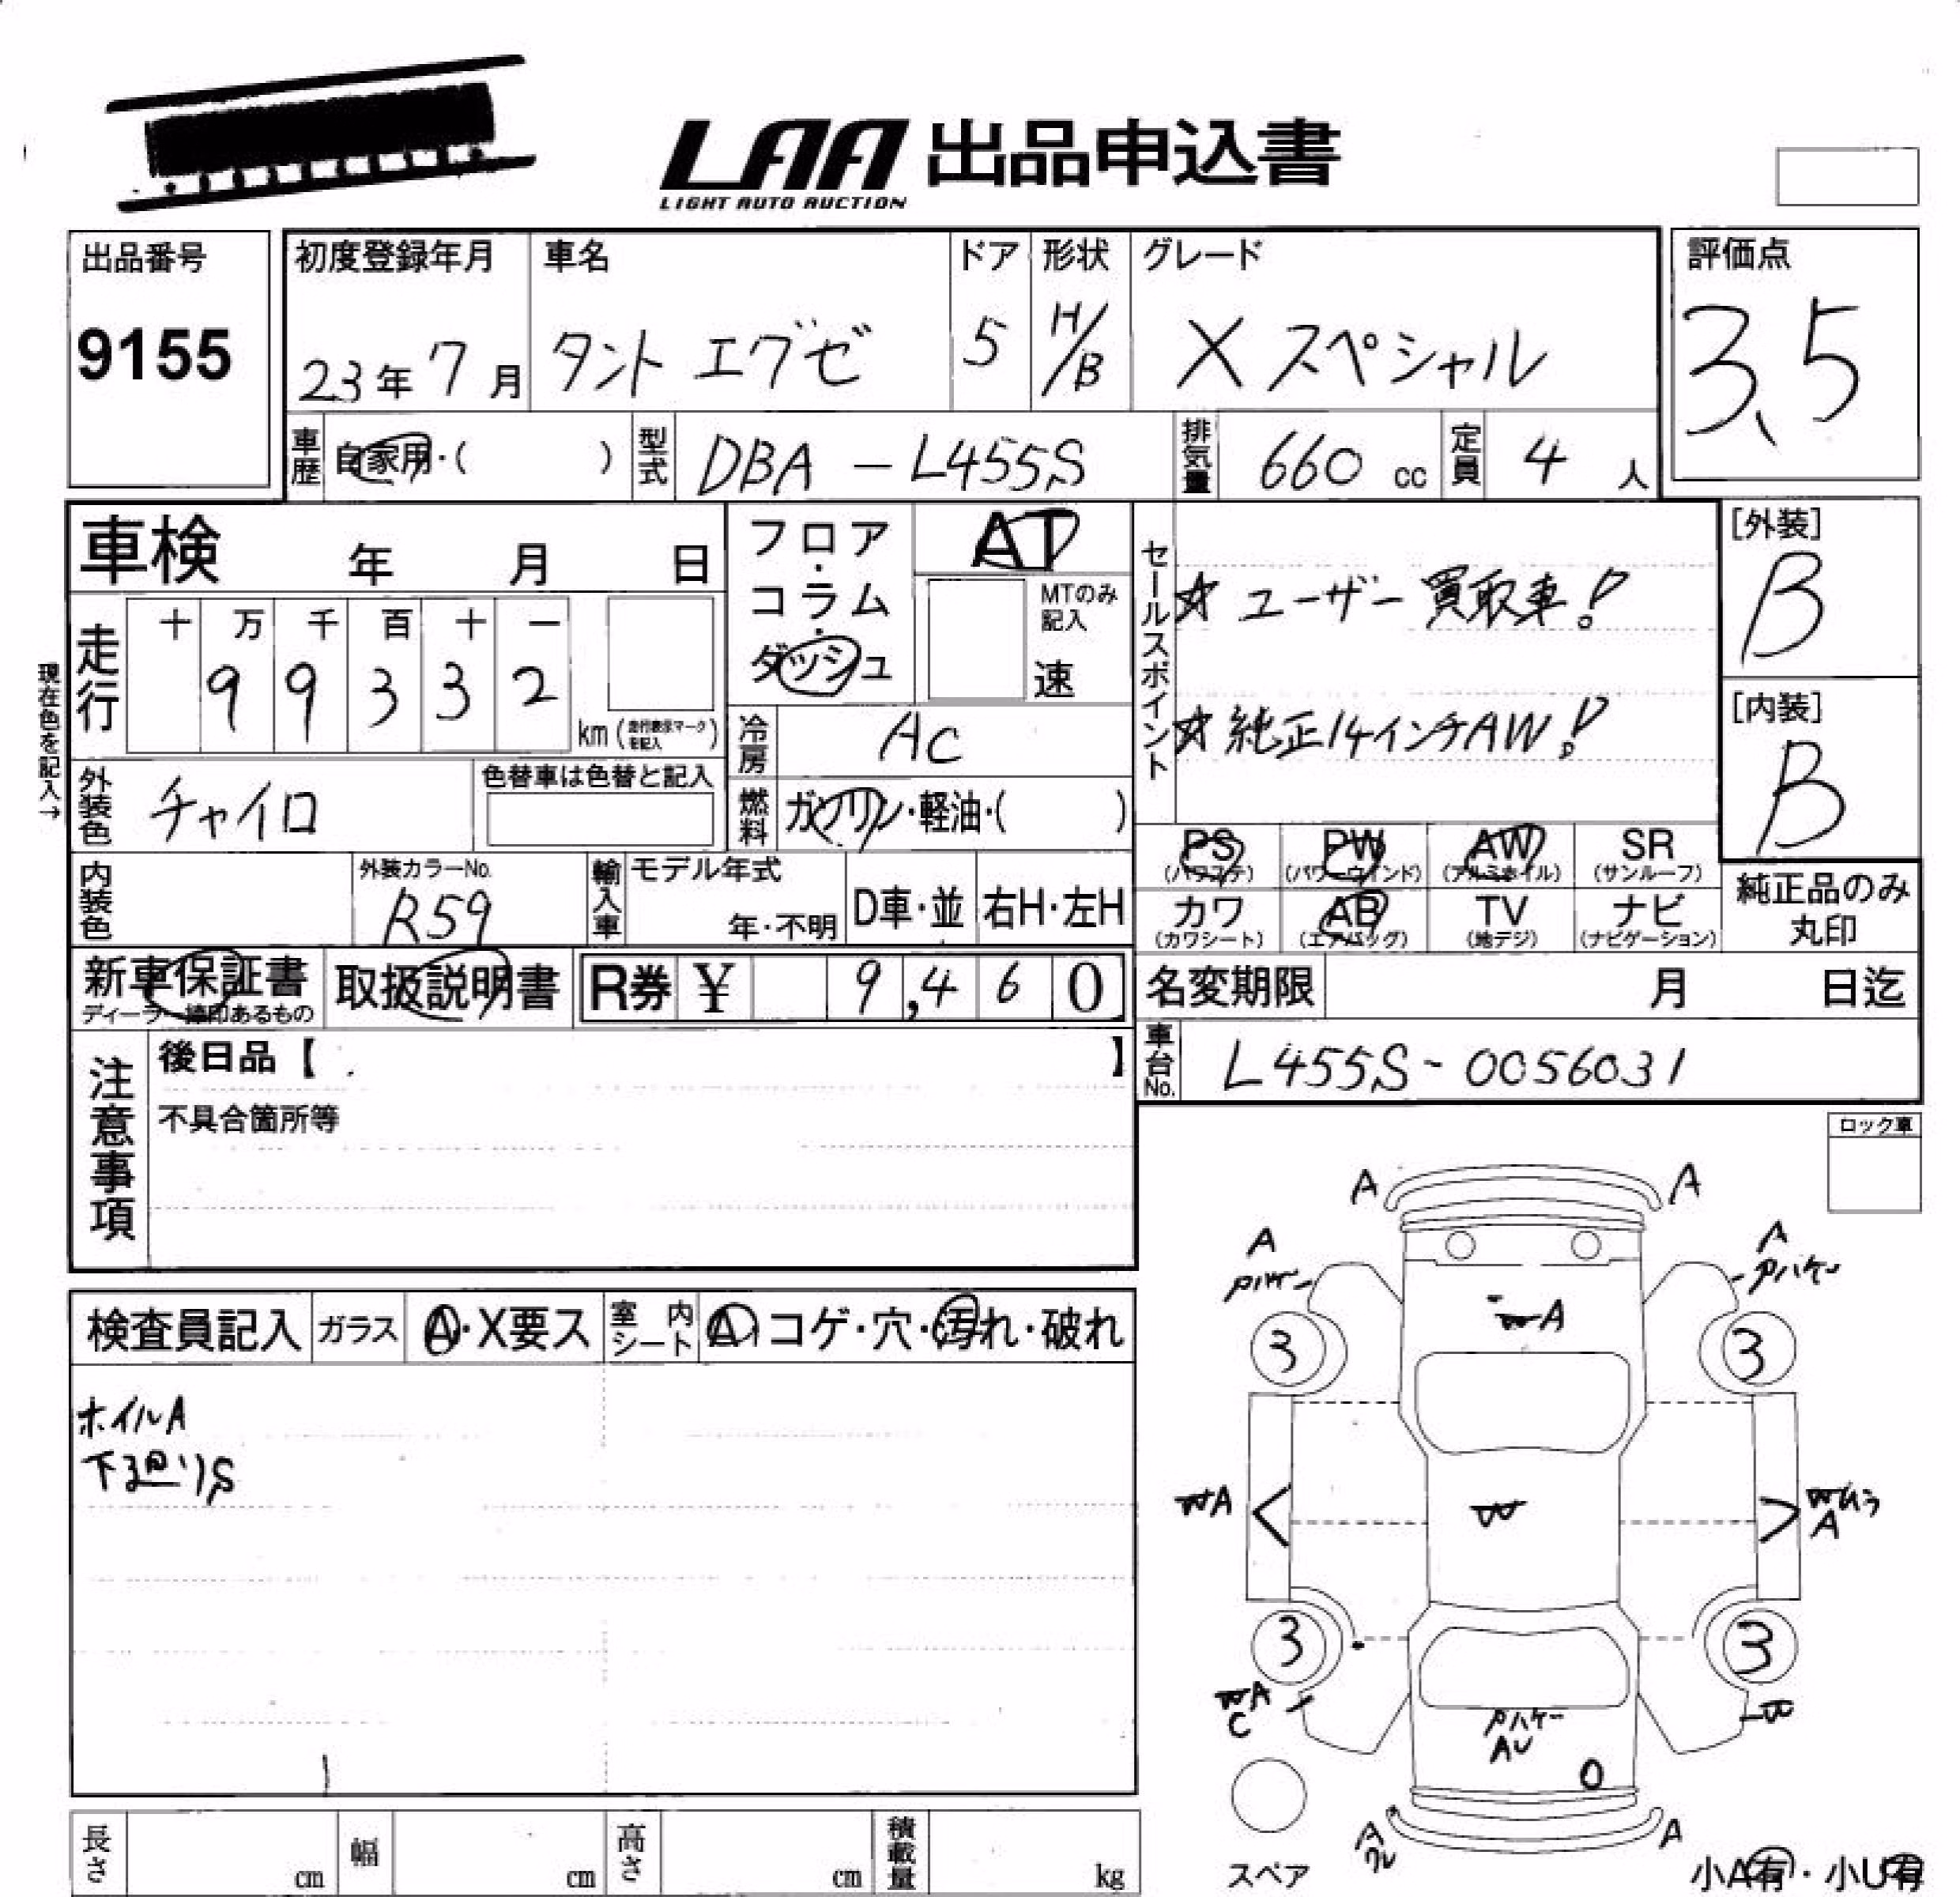 LAA 出品申込書
LIGHT AUTO AUCTION
出品番号
9155
初度登録年月
23年7月
車名
タントエグゼ
ドア
5
形状
H/B
グレード
Xスペシャル
評価点
3.5
車歴
自家用・( )
型式
DBA-L455S
排気量
660 cc
定員
4 人
車検 年 月 日
フロア・コラム・ダッシュ
AT
MTのみ記入
速
セールスポイント
☆ユーザー買取車!
☆純正14インチAW!
[外装]
B
[内装]
B
現在色を記入→
走行
十 万 千 百 十 一
9 9 3 3 2
km(走行表示マークを記入)
冷房
AC
外装色
チャイロ
色替車は色替と記入
燃料
ガソリン・軽油・( )
PS
(パワステ)
PW
(パワーウインド)
AW
(アルミホイル)
SR
(サンルーフ)
カワ
(カワシート)
AB
(エアバッグ)
TV
(地デジ)
ナビ
(ナビゲーション)
純正品のみ
丸印
内装色
外装カラーNo.
R59
輸入車
モデル年式
年・不明
D車・並
右H・左H
新車保証書
取扱説明書
R券 ¥ 9,460
名変期限 月 日迄
車台No.
L455S-0056031
注意事項
後日品【 】
不具合箇所等
ロック車
検査員記入
ガラス
A・X要ス
室内シート
A コゲ・穴・汚れ・破れ
ホイルA
下廻りS
A
A
A
A
Pハゲ
A
3
3
WA
W
A
3
3
WA
C
W
Pハゲ
AU
A
A
スペア
小A有・小U有
長さ cm
幅 cm
高さ cm
積載量 kg